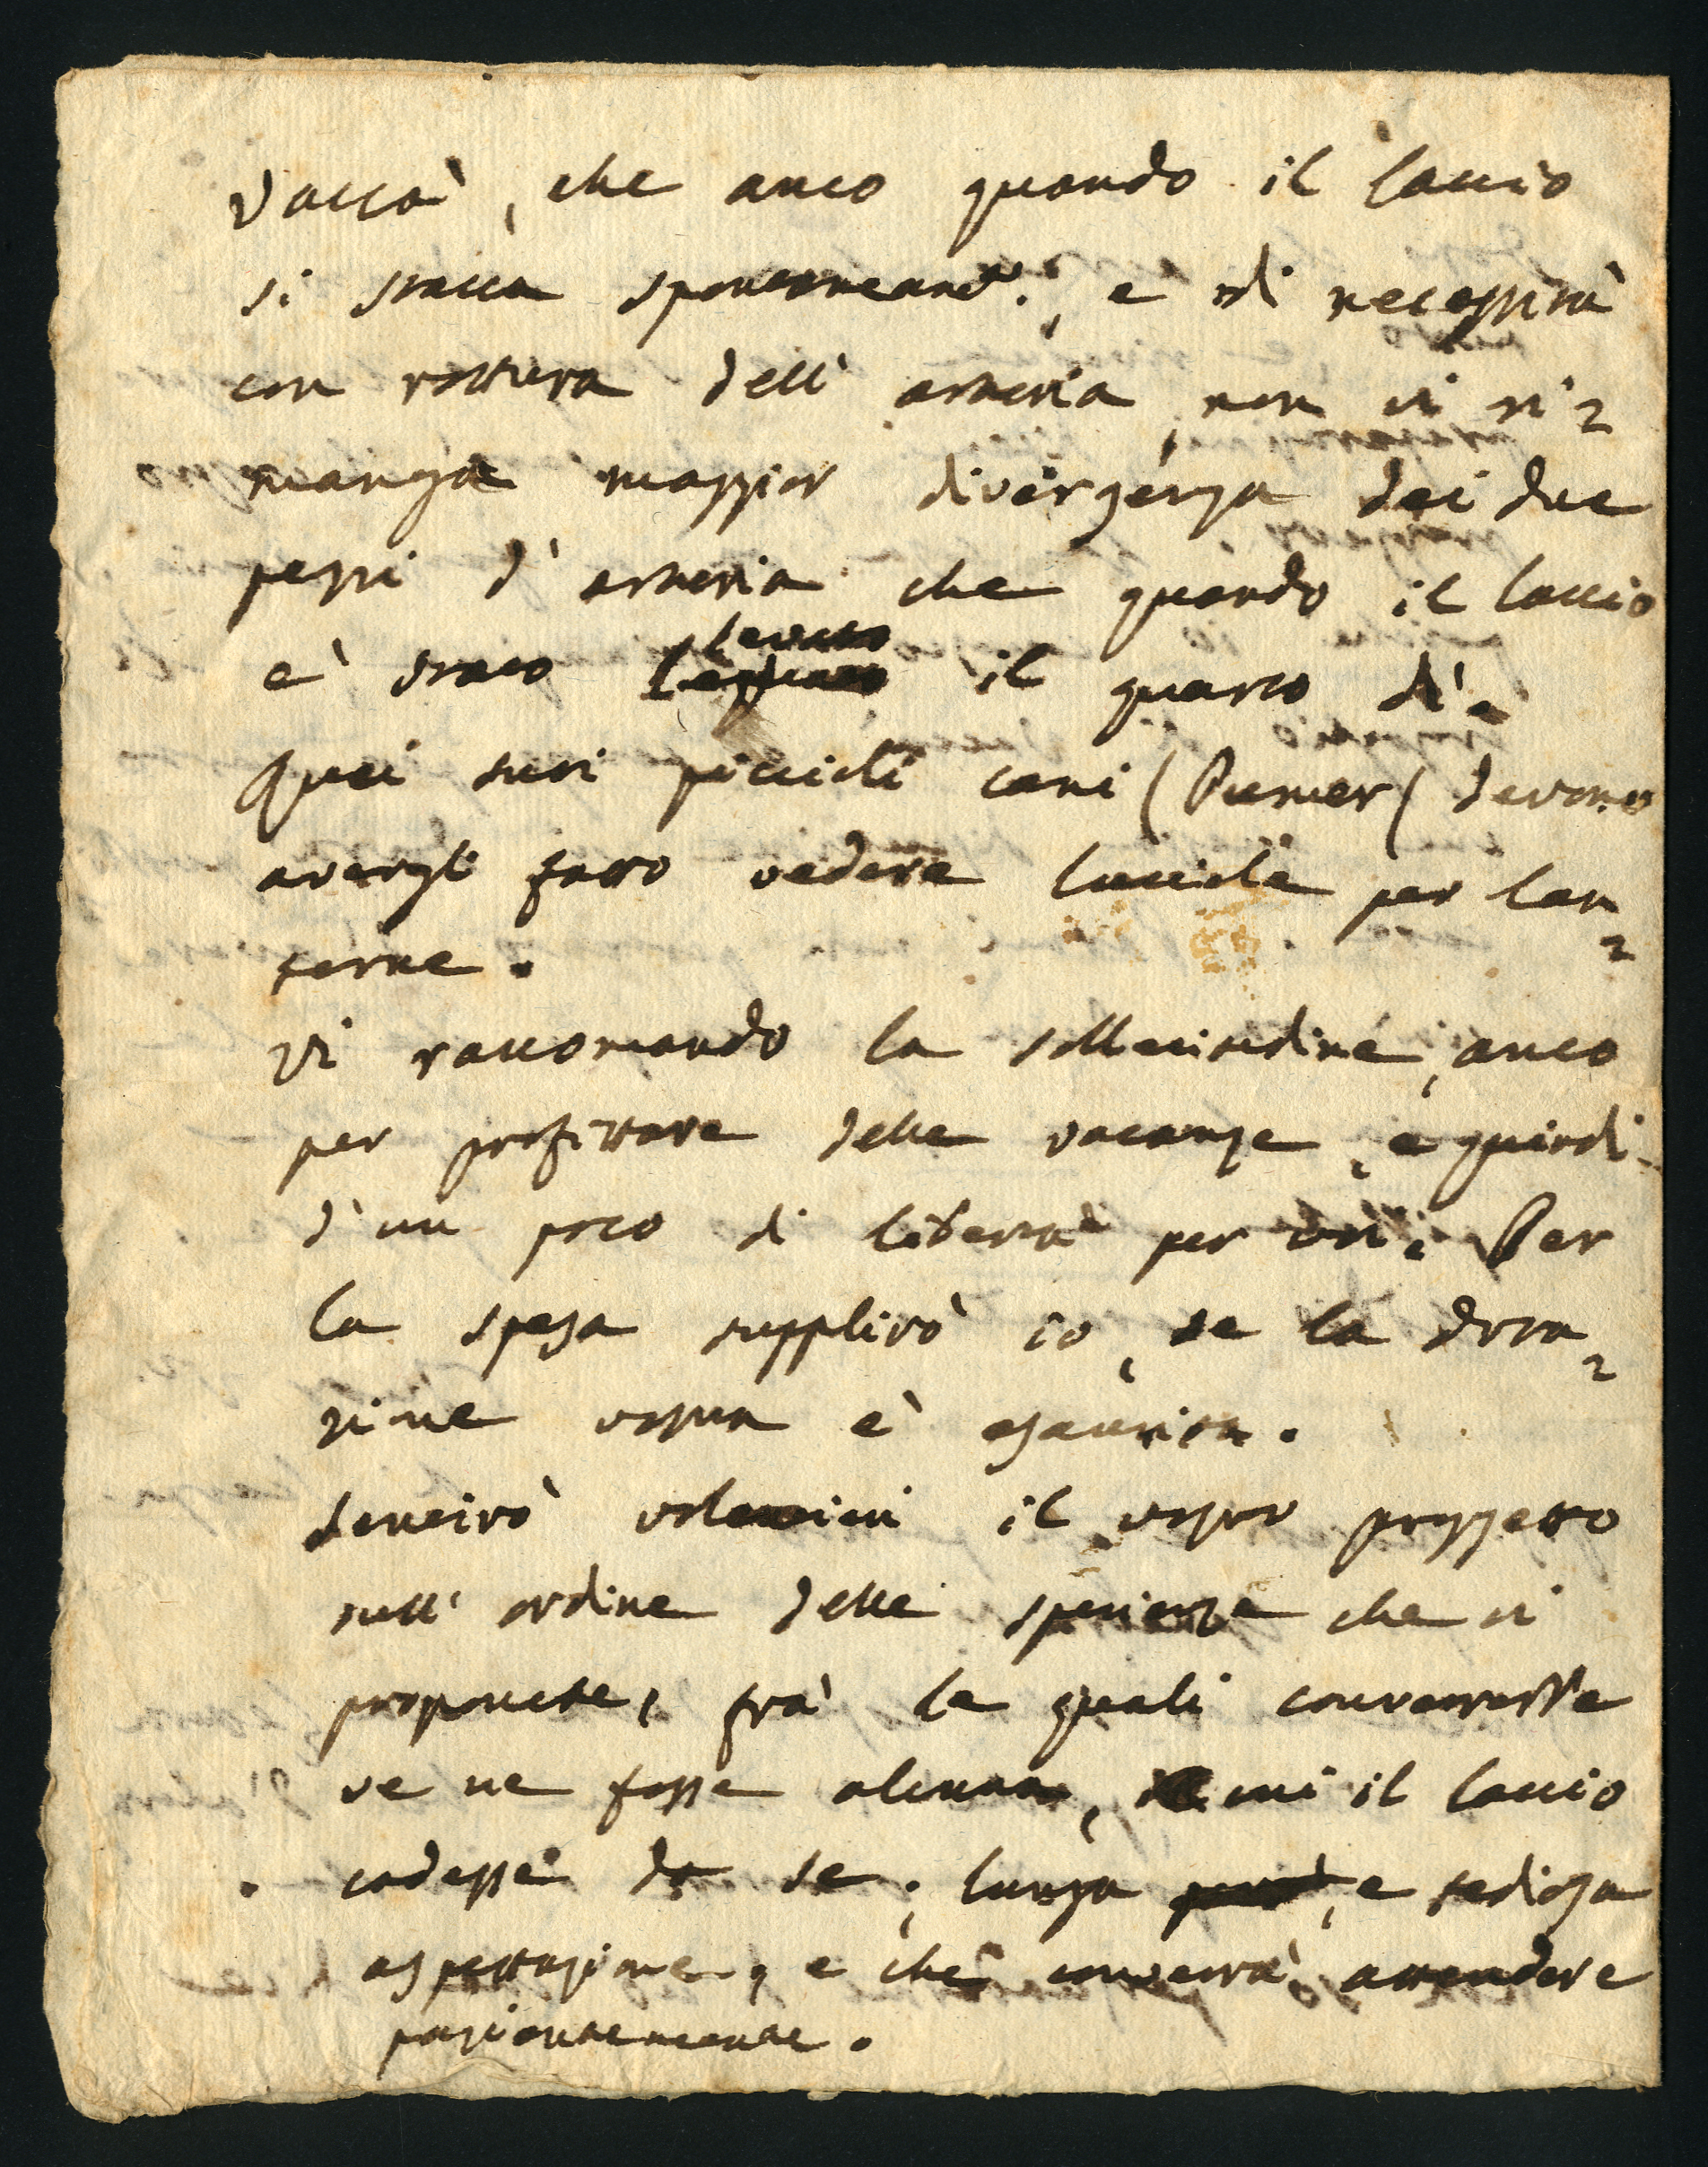 Vaccà, che anco quando il laccio
si stacca spontaneam.e, e di necessità
con rottura dell' arteria, non vi ri=
manga maggior divergenza dei due
pezzi d' arteria che quando il laccio
e' stato levato il quarto dì.
Quei suoi piccioli cani ( ( devono
avergli fatto vedere lucciole per lan=
terne.
Vi raccomando la sollecitudine, anco
per profittare delle vacanze, e quindi
d'un poco di libertà per voi. Per
la spesa supplirò io, se la dota=
zione vostra è esaurita.
Sentirò volentieri il vostro proggetto
sull' ordine delle sperienze che vi
proponete, frà le quali converrebbe
ve ne fosse alcuna, in cui il laccio
cadesse da se; lunga però, e tediosa
aspettazione, e che converrà attendere
pazientemente.